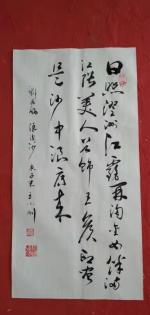 日照澄洲江霧開淘金女伴满
江隈美人首飾王侯印尽
是沙中浪底来
劉禹錫 浪淘沙